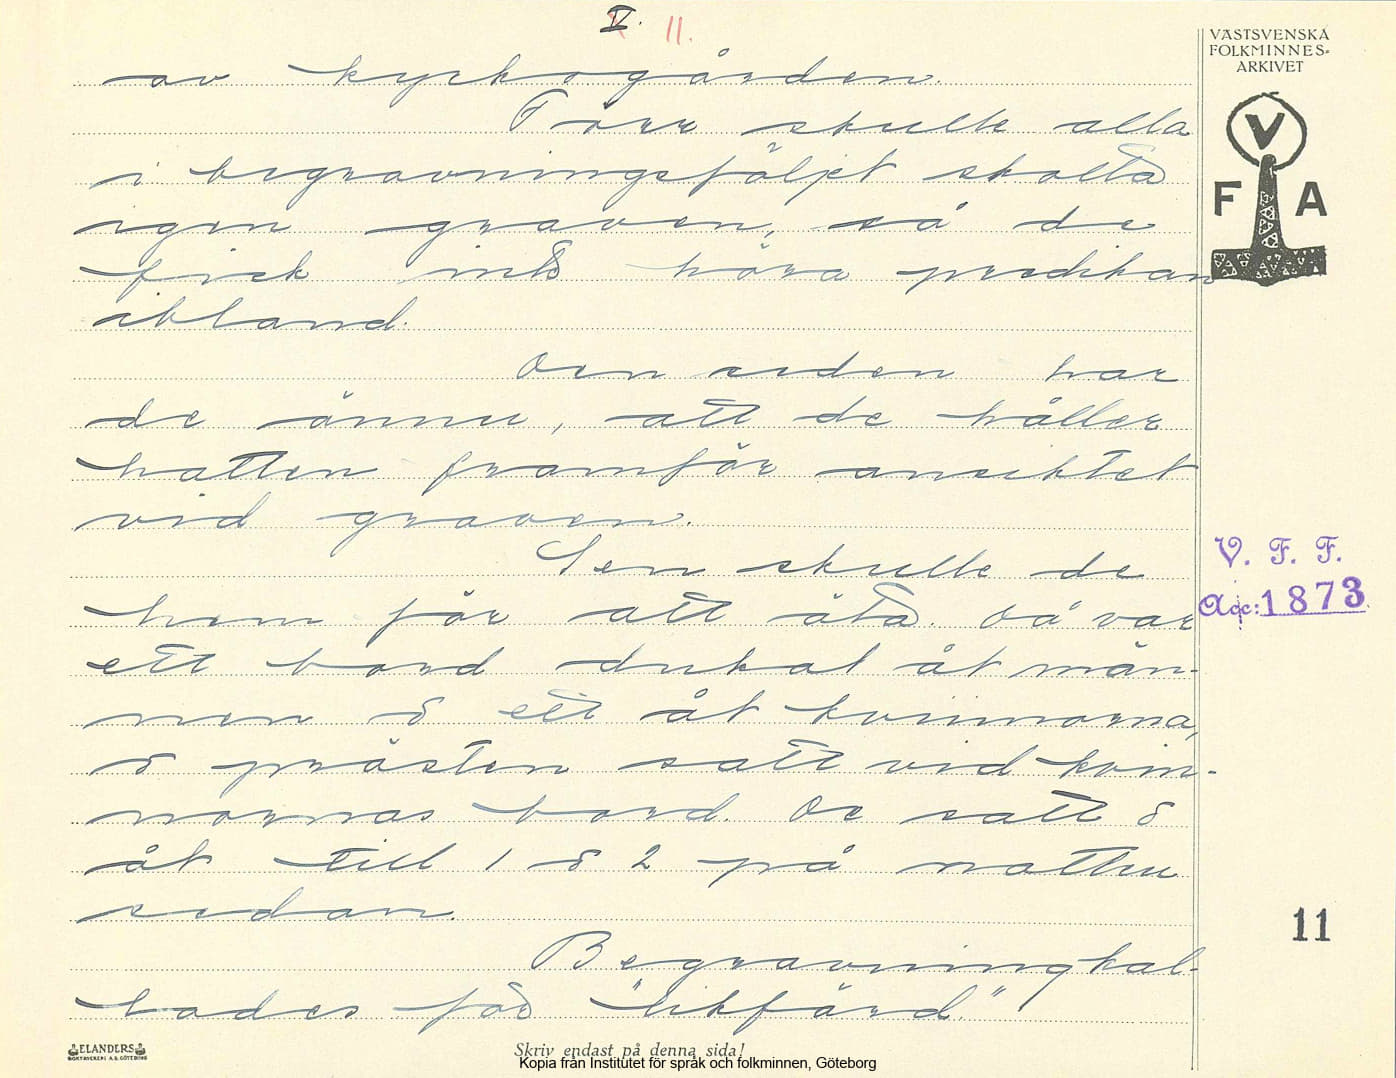 V. 11.
VÄSTSVENSKA
FOLKMINNES-
ARKIVET
V
F A
av kyrkogården.
Förr skulle alla
i begravningsföljet skotta
igen graven, så de
fick inte höra predikan
ibland.
Den seden har
de ännu, att de håller
hatten framför ansiktet
vid graven.
Sen skulle de
hem för att äta. Då var
ett bord dukat åt män-
nen & ett åt kvinnorna,
& prästen satt vid kvin-
nornas bord. De satt &
åt till 1 & 2 på natten
sedan.
Begravning kal-
lades för "likfärd."
V. F. F.
Acc: 1873
11
ELANDERS
BOKTRYCKERI A.B. GÖTEBORG
Skriv endast på denna sida!
Kopia från Institutet för språk och folkminnen, Göteborg